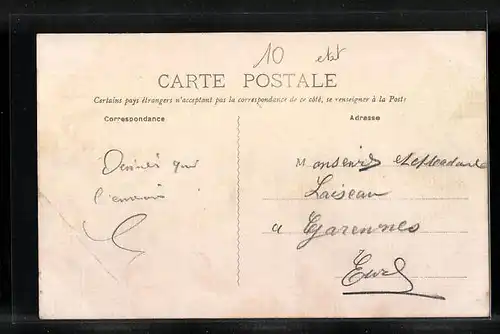 10 etat
CARTE POSTALE
Certains pays étrangers n'acceptant pas la correspondance de ce côté, se renseigner à la Poste
Correspondance
Adresse
Monsieur et
Loiseau
a Garennes
Eure